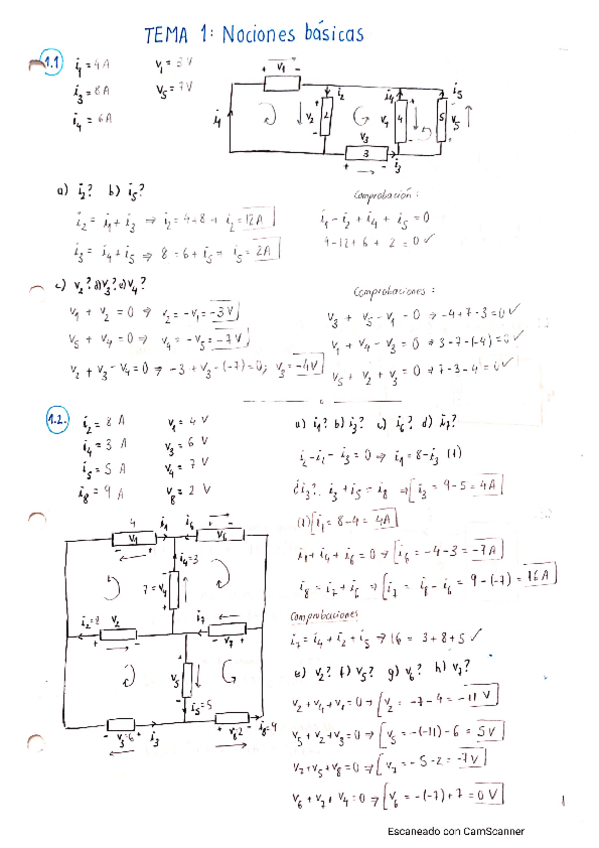 TEMA 1: Nociones básicas
1.1 i1 = 4A v1 = 3V
i3 = 8A v5 = 7V
i4 = 6A
+ v1 -
i1 v2 2 i2 i4 v4 4 5 v5 i5
v3
+ 3 - i3
a) i2? b) i5?
i2 = i1 + i3 ⇒ i2 = 4+8 → i2 = 12A
i3 = i4 + i5 ⇒ 8 = 6 + i5 = i5 = 2A
Comprobación:
i1 - i2 + i4 + i5 = 0
4-12+6+2 = 0 ✓
c) v2? d) v3? e) v4?
v1 + v2 = 0 ⇒ v2 = -v1 = -3V
v5 + v4 = 0 ⇒ v4 = -v5 = -7V
v2 + v3 - v4 = 0 ⇒ -3 + v3 - (-7) = 0; v3 = -4V
Comprobaciones:
v3 + v5 - v1 = 0 ⇒ -4+7-3 = 0 ✓
v1 + v4 - v3 = 0 ⇒ 3-7-(-4) = 0 ✓
v5 + v2 + v3 = 0 ⇒ 7-3-4 = 0 ✓
1.2. i2 = 8 A v1 = 4 V
i4 = 3 A v3 = 6 V
i5 = 5 A v4 = 7 V
i8 = 9 A v8 = 2 V
a) i1? b) i3? c) i6? d) i7?
i2 - i1 - i3 = 0 ⇒ i1 = 8 - i3 (1)
¿i3?. i3 + i5 = i8 ⇒ i3 = 9-5 = 4A
(1) i1 = 8-4 = 4A
i1 + i4 + i6 = 0 ⇒ i6 = -4-3 = -7A
i8 = i7 + i6 ⇒ i7 = i8 - i6 = 9-(-7) = 16A
Comprobaciones
i7 = i4 + i2 + i5 ⇒ 16 = 3+8+5 ✓
e) v2? f) v5? g) v6? h) v7?
v2 + v4 + v1 = 0 ⇒ v2 = -7-4 = -11 V
v5 + v2 + v3 = 0 ⇒ v5 = -(-11)-6 = 5V
v7 + v5 + v8 = 0 ⇒ v7 = -5-2 = -7V
v6 + v7 + v4 = 0 ⇒ v6 = -(-7)+7 = 0V
4 i1 i6
- v1 + v6
i4=3
7=v4
i2=8 v2 i7
+ - v7
v5
i5=5
v3=6 i3 v8=2
1
Escaneado con CamScanner